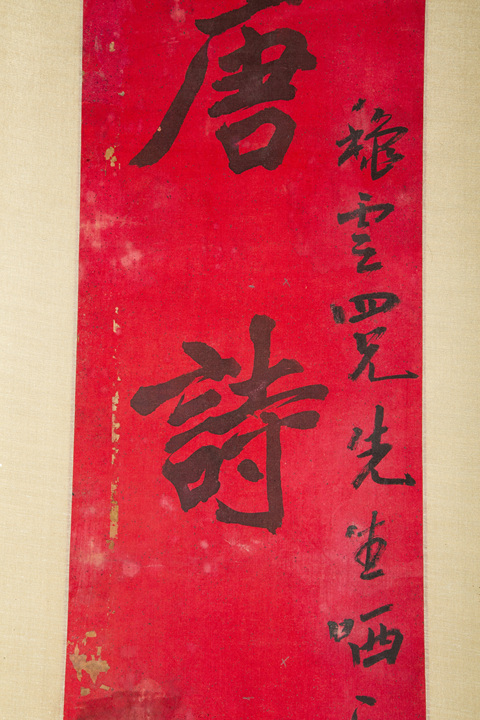 雲四兄先生哂
唐詩